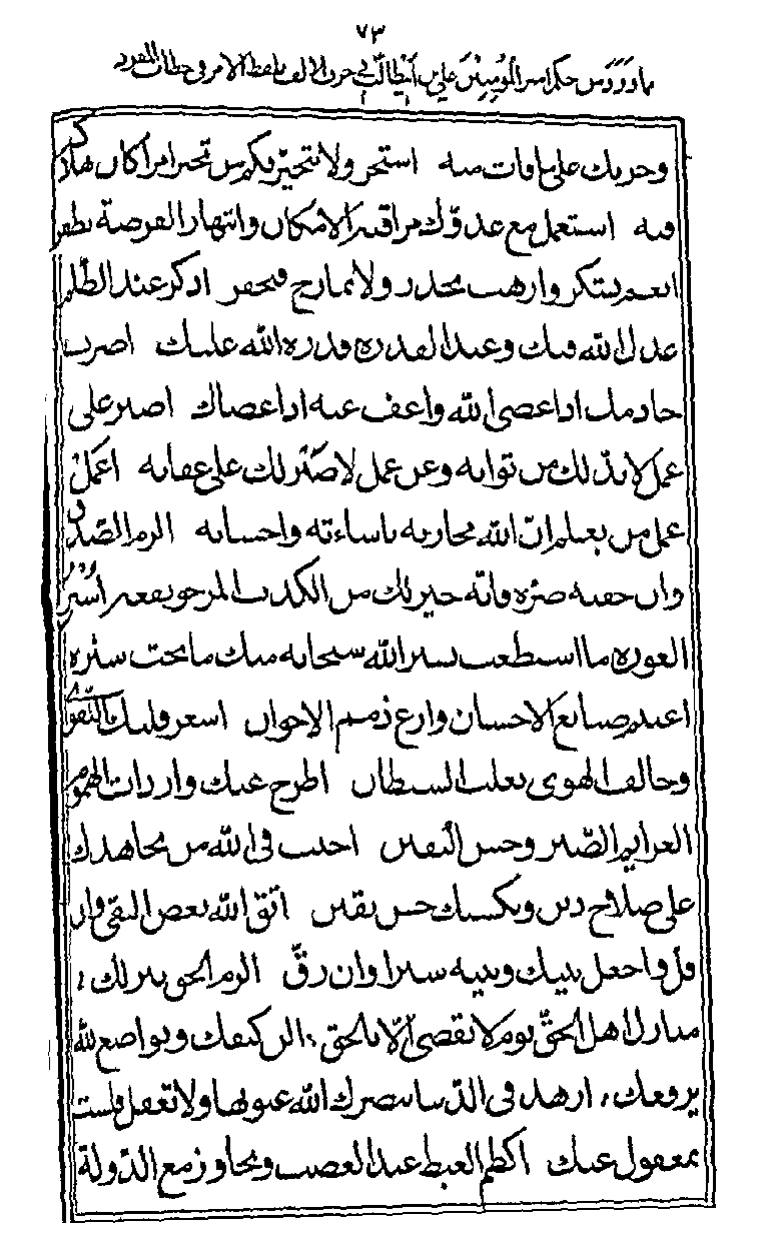 ٧٣
مما ورد من حكم امير المؤمنين علي بن أبيطالب في حرف الالف بلفظ الامر في خطاب المفرد
وحزنك على مافات منه استخر ولا تتخيّر فكم من تخيّر امرا كان هلاكه
فيه استعمل مع عدوّك مراقبة الامكان وانتهاز الفرصة تظفر
انعم تشكر وارهب تحذر ولا تمازح فتحقر اذكر عند الظلم
عدل الله فيك وعند القدرة قدرة الله عليك اضرب
خادمك اذا عصى الله واعف عنه اذا عصاك اصبر على
عمل لابدّ لك من ثوابه وعن عمل لا صَبْر لك على عقابه اعمَلْ
عمل من يعلم انّ الله مجازيه باساءته واحسانه الزم الصّدق
وان خفت ضرّه فانّه خير لك من الكذب المرجو نفعه اسْتُر
العورة ما استطعت يستر الله سبحانه منك ما تحب ستره
اغتنم صنايع الاحسان وارع ذمم الاخوان اشعر قلبك التّقوى
وخالف الهوى تغلب الشيطان اطرح عنك واردات الهموم
العزايم الصّبر وحسن اليقين احبب في الله من يجاهدك
على صلاح دين ويكسبك حسن يقين اتّق الله بعض التقى وان
قلّ واجعل بينك وبينه سترا وان رقّ الزم الحق ينزلك
منازل اهل الحقّ يوم لا يقضى الّا بالحق الن كنفك وتواضع لله
يرفعك ازهد في الدّنيا يبصرك الله عيوبها ولا تغفل فلست
بمغفول عنك اكظم الغيظ عند الغضب وتجاوز مع الدّولة